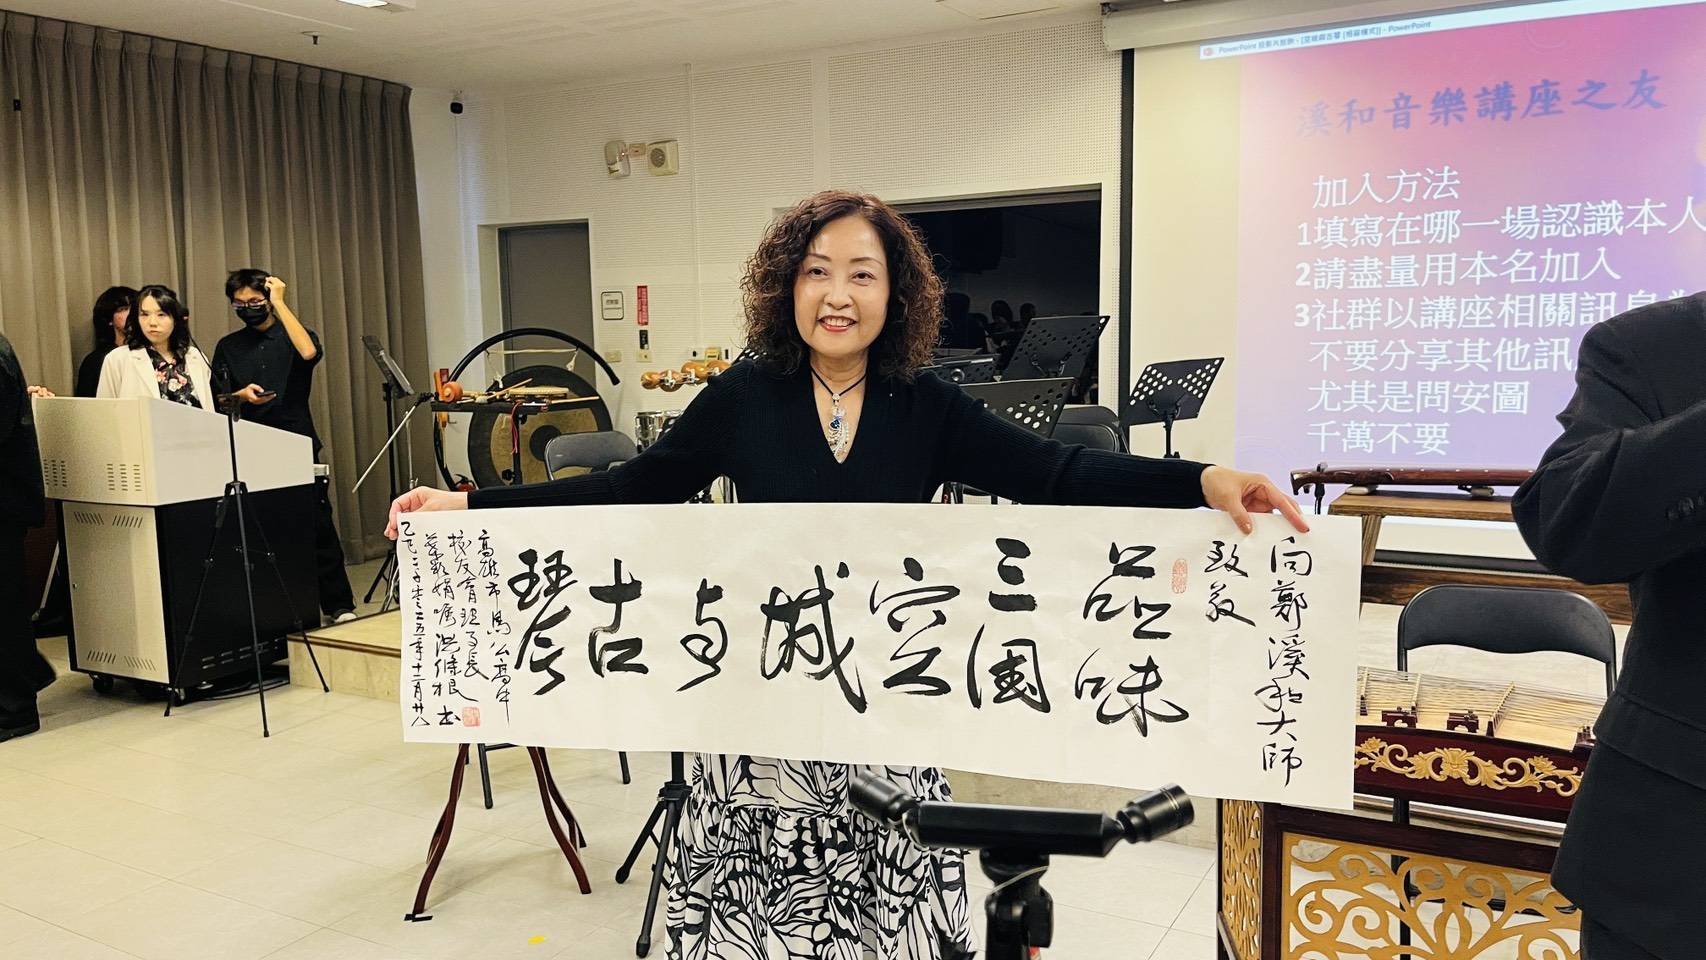 溪和音樂講座之友
加入方法
1填寫在哪一場認識本人
2請盡量用本名加入
3社群以講座相關訊息為
不要分享其他訊
尤其是問安圖
千萬不要
向鄭溪和大師
致敬
品味
三國
空
城
与
古
琴
高雄市馬公高中
校友會理事長
蔡淑娟囑洪條根書
乙巳二千零二五年十二月廿八